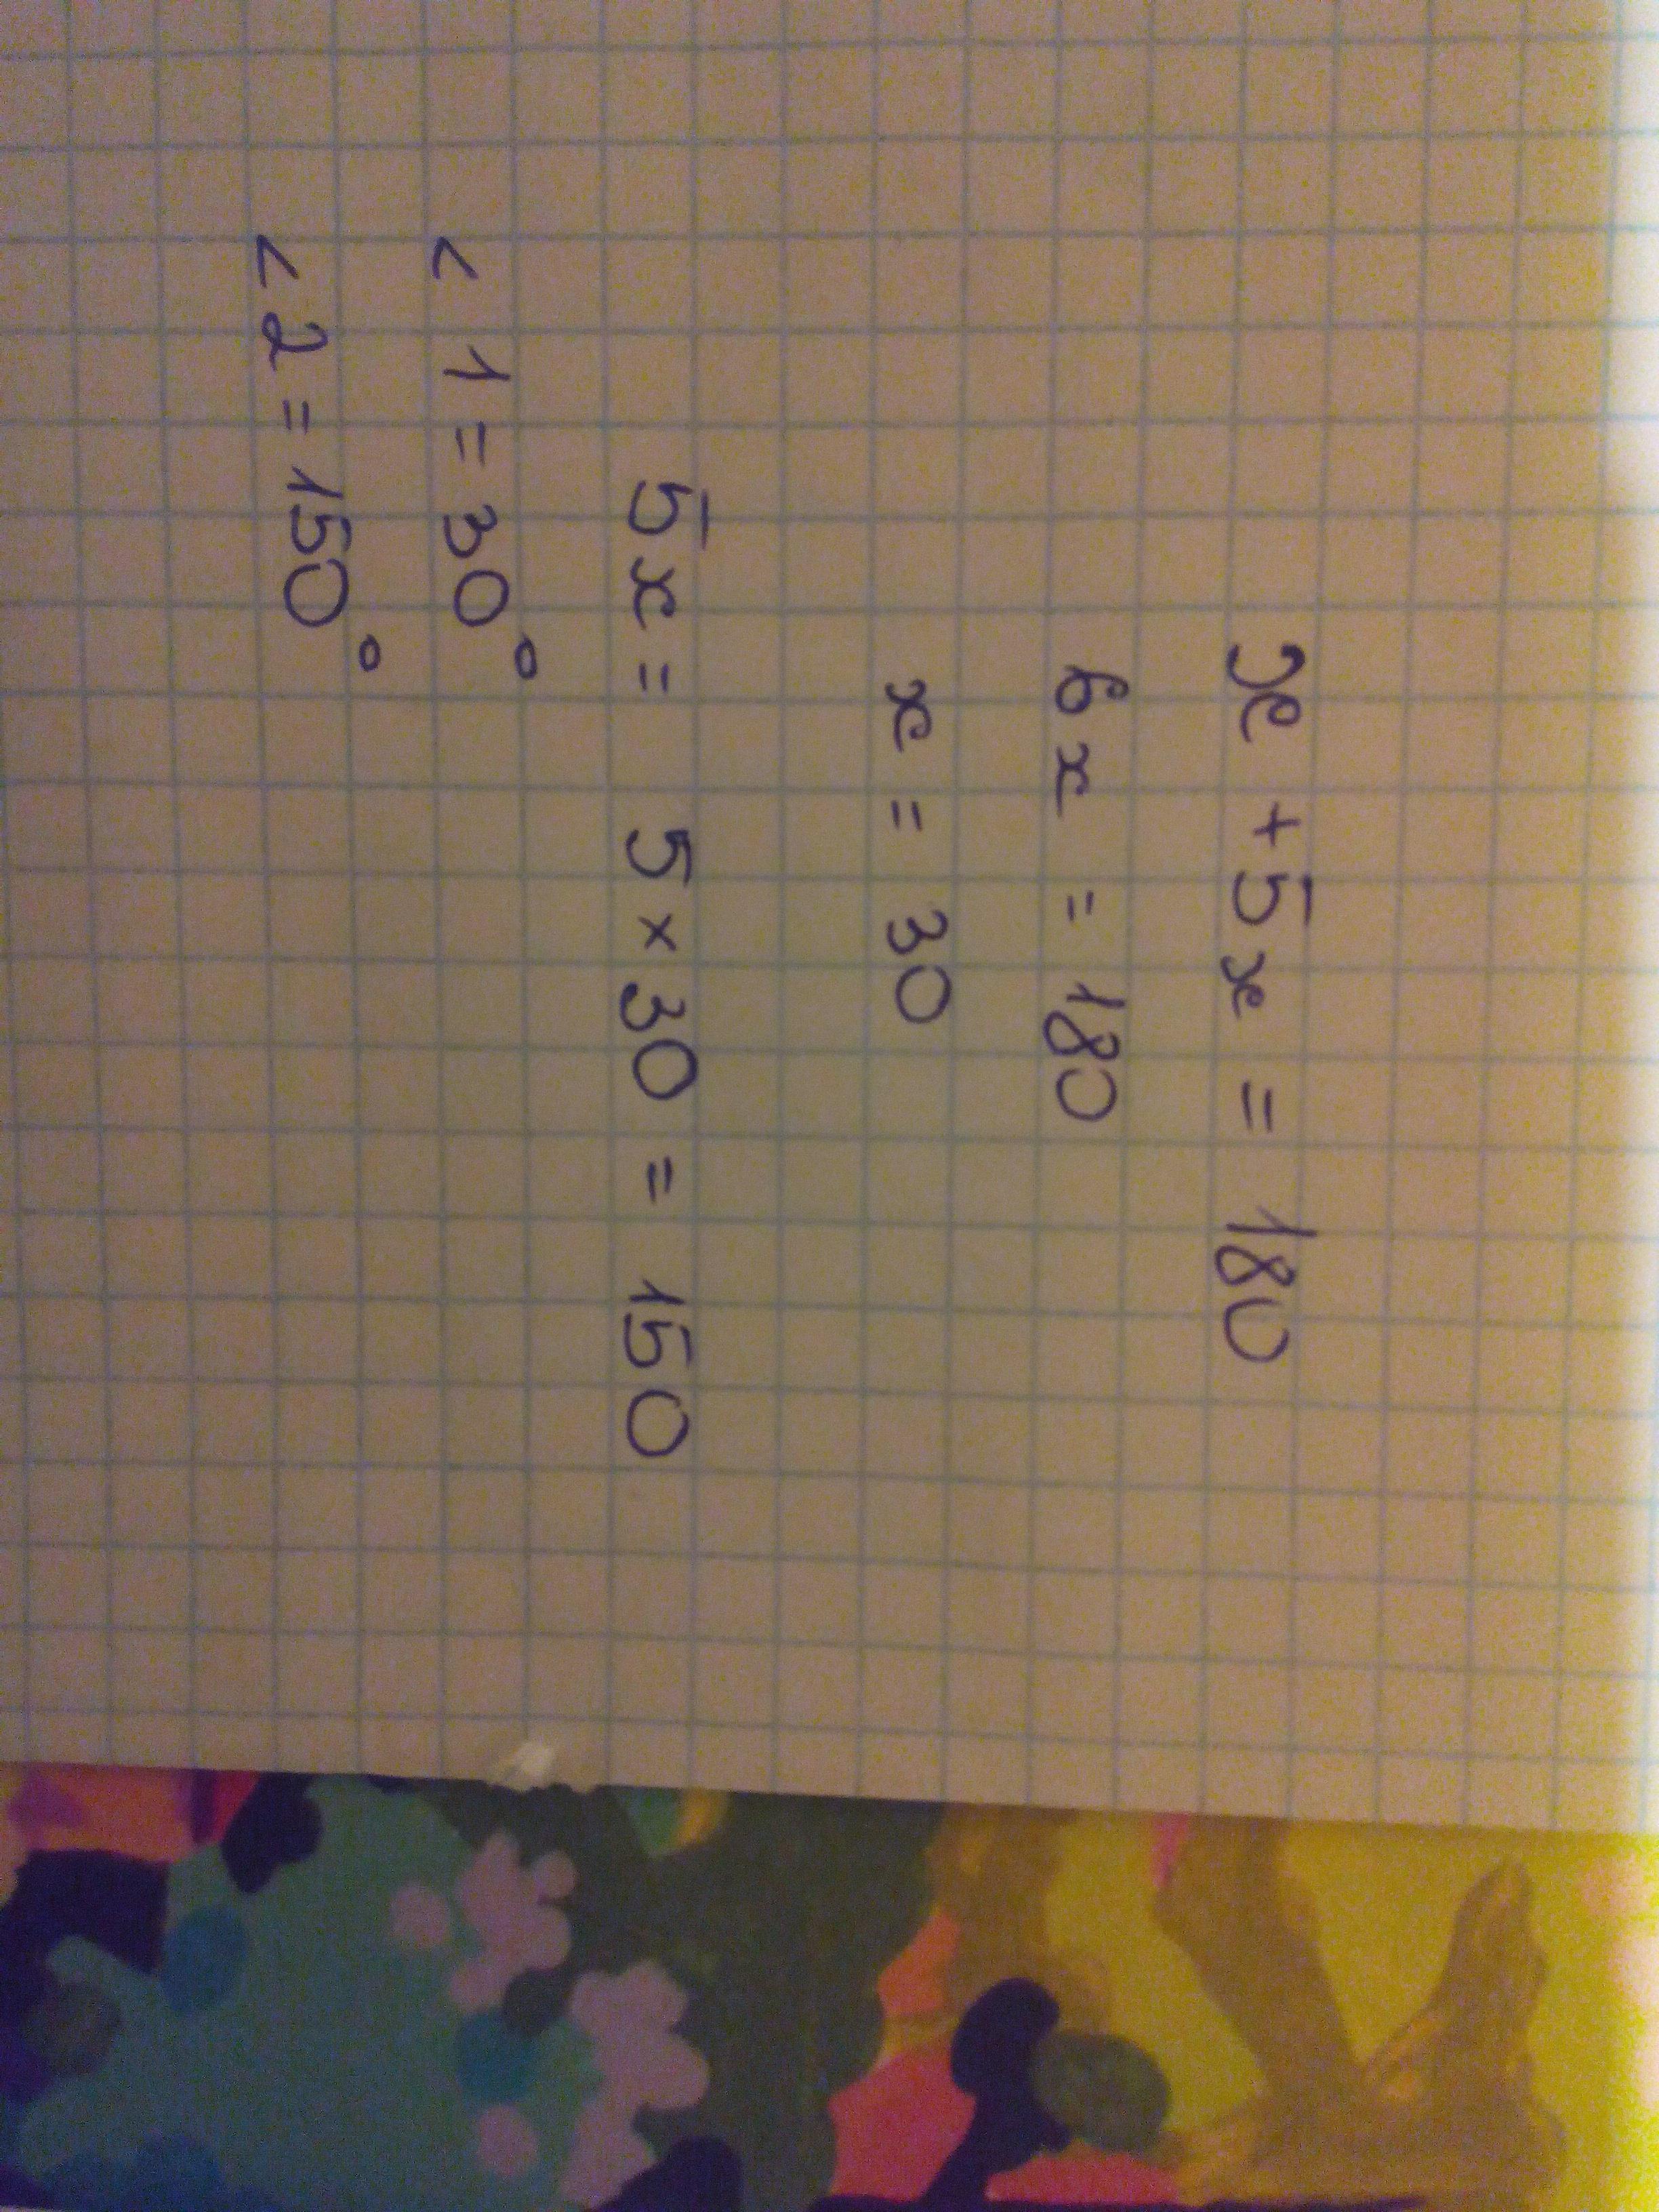 x + 5x = 180
6x = 180
x = 30
5x = 5 × 30 = 150
< 1 = 30°
< 2 = 150°